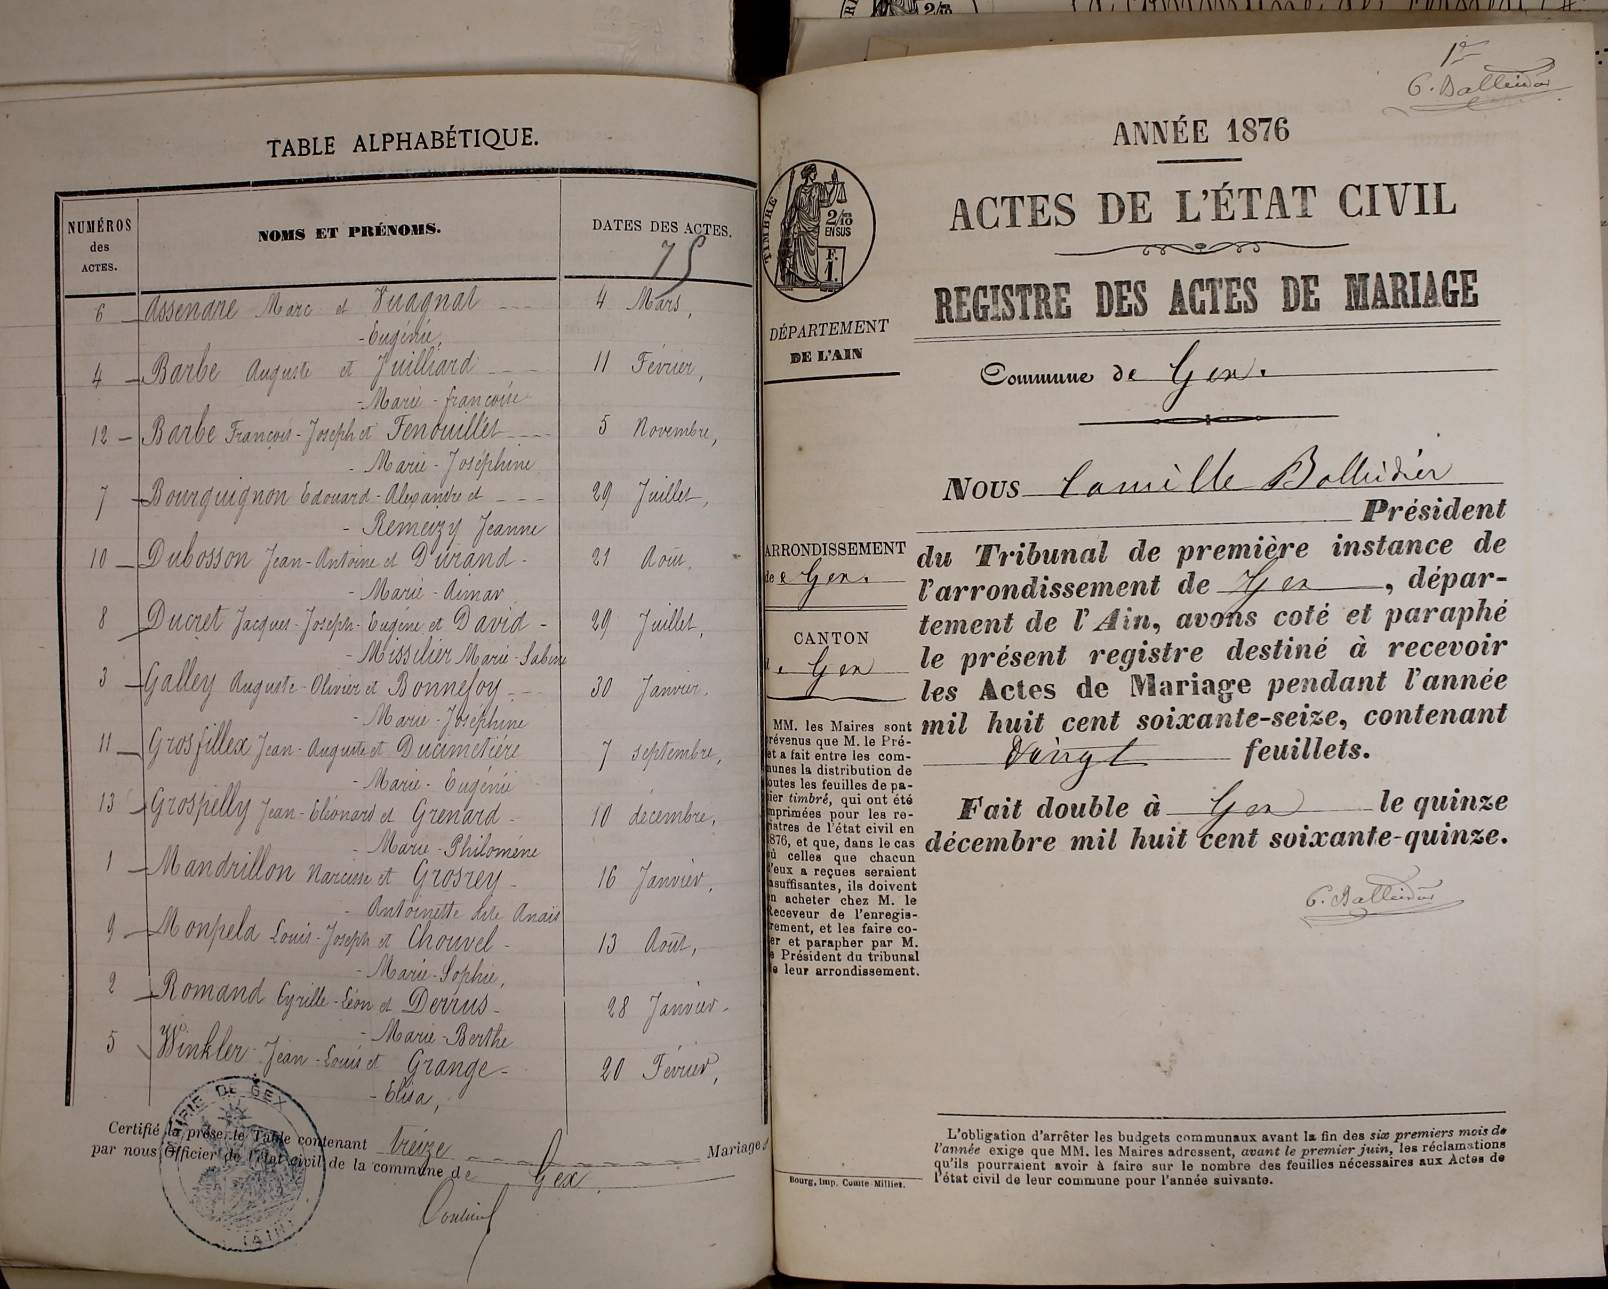 TABLE ALPHABÉTIQUE.
NUMÉROS
des
ACTES.
NOMS ET PRÉNOMS.
DATES DES ACTES.
75
6 Assenare Marc et Vuagnat 4 Mars,
- Eugénie,
4 Barbe Auguste et Juilliard 11 Février,
- Marie - françoise
12 Barbe François - Joseph et Fenouillet 5 Novembre,
- Marie - Joséphine
7 Bourguignon Edouard - Alexandre et 29 Juillet,
- Remeizy Jeanne
10 Dubosson Jean - Antoine et Durand - 21 Août,
- Marie - Aimar
8 Ducret Jacques - Joseph - Eugène et David - 29 Juillet,
- Missilier Marie - Sabine
3 Galley Auguste - Olivier et Bonnefoy - 30 Janvier,
- Marie - Joséphine
11 Grosfillex Jean - Auguste et Ducimetière 7 septembre,
- Marie - Eugénie
13 Grospelly Jean - Eléonard et Grenard - 10 décembre,
- Marie - Philomène
1 Mandrillon Narcisse et Grosrey - 16 Janvier,
- Antoinette dite Anaïs
9 Monpela Louis - Joseph et Chouvel - 13 Août,
- Marie - Sophie,
2 Romand Cyrille - Léon et Derrus - 28 Janvier -
- Marie - Berthe
5 Winkler Jean - Louis et Grange - 20 Février,
- Elisa,
MAIRIE DE GEX
(AIN)
Certifié la présente Table contenant treize Mariages
par nous Officier de l'état civil de la commune de Gex.
1er
C. Balleidier
ANNÉE 1876
ACTES DE L'ÉTAT CIVIL
REGISTRE DES ACTES DE MARIAGE
TIMBRE
2/10
EN SUS
F.
1.
DÉPARTEMENT
DE L'AIN
Commune de Gex.
NOUS Camille Balleidier
Président
du Tribunal de première instance de
l'arrondissement de Gex, dépar-
tement de l'Ain, avons coté et paraphé
le présent registre destiné à recevoir
les Actes de Mariage pendant l'année
mil huit cent soixante-seize, contenant
Vingt feuillets.
Fait double à Gex le quinze
décembre mil huit cent soixante-quinze.
C. Balleidier
ARRONDISSEMENT
de Gex.
CANTON
de Gex
MM. les Maires sont
prévenus que M. le Pré-
fet a fait entre les com-
munes la distribution de
toutes les feuilles de pa-
pier timbré, qui ont été
imprimées pour les re-
gistres de l'état civil en
1876, et que, dans le cas
où celles que chacun
d'eux a reçues seraient
insuffisantes, ils doivent
en acheter chez M. le
Receveur de l'enregis-
trement, et les faire co-
ter et parapher par M.
le Président du tribunal
de leur arrondissement.
Bourg, Imp. Comte-Milliet.
L'obligation d'arrêter les budgets communaux avant la fin des six premiers mois de
l'année exige que MM. les Maires adressent, avant le premier juin, les réclamations
qu'ils pourraient avoir à faire sur le nombre des feuilles nécessaires aux Actes de
l'état civil de leur commune pour l'année suivante.